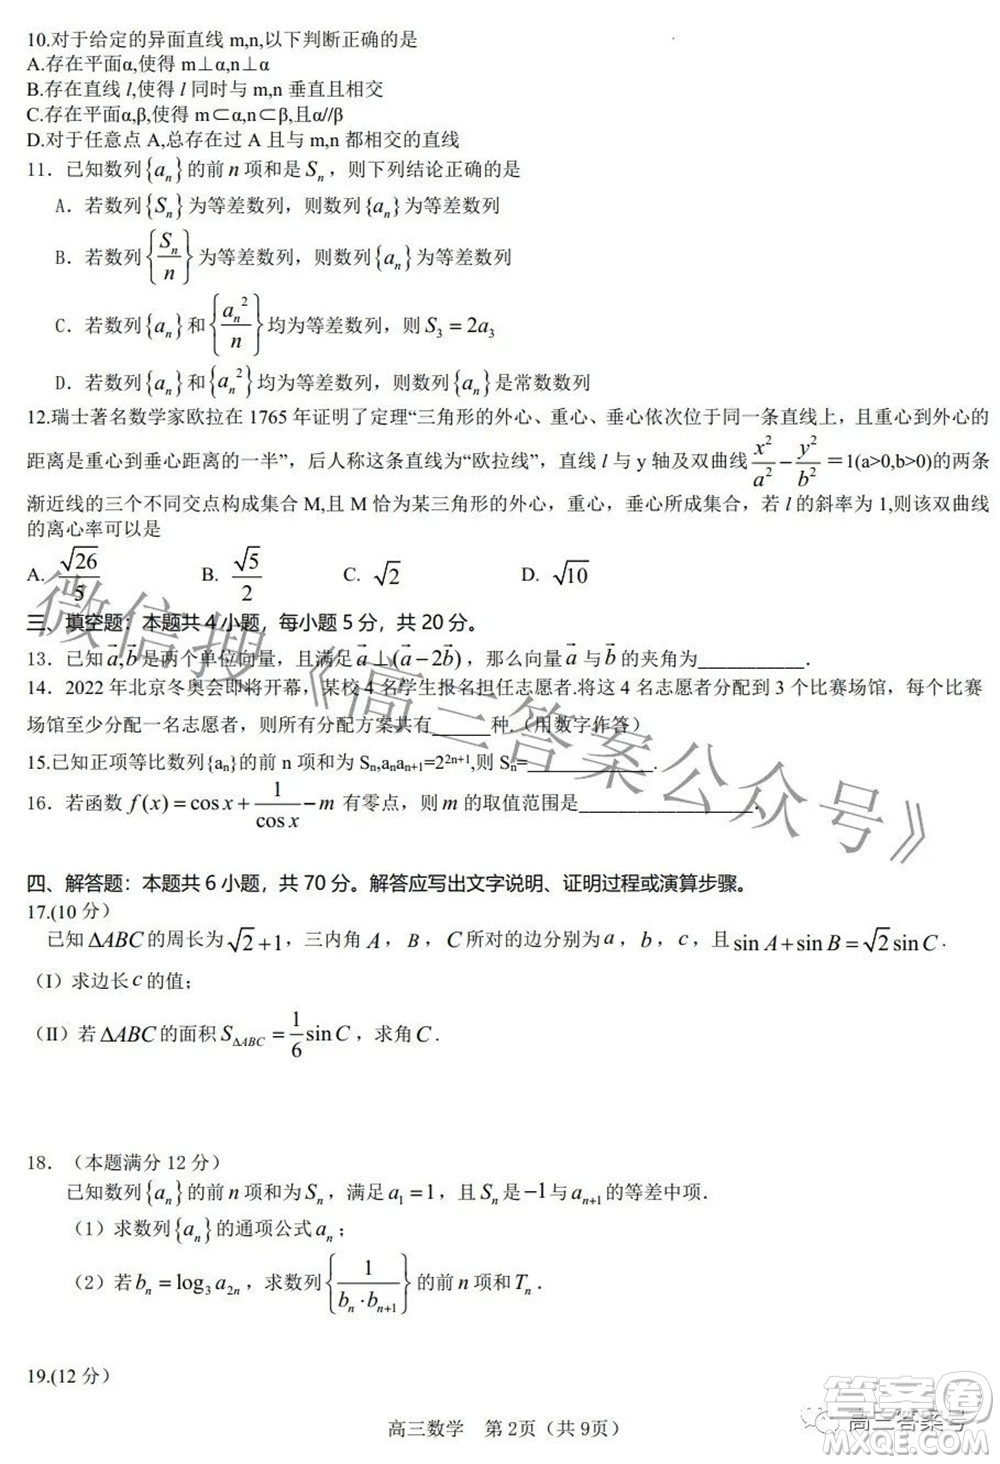 10.对于给定的异面直线 m,n,以下判断正确的是
A.存在平面α,使得 m⊥α,n⊥α
B.存在直线 l,使得 l 同时与 m,n 垂直且相交
C.存在平面α,β,使得 m⊂α,n⊂β,且α//β
D.对于任意点 A,总存在过 A 且与 m,n 都相交的直线
11. 已知数列{aₙ}的前 n 项和是 Sₙ，则下列结论正确的是
A. 若数列{Sₙ}为等差数列，则数列{aₙ}为等差数列
B. 若数列{Sₙ/n}为等差数列，则数列{aₙ}为等差数列
C. 若数列{aₙ}和{aₙ²/n}均为等差数列，则 S₃=2a₃
D. 若数列{aₙ}和{aₙ²}均为等差数列，则数列{aₙ}是常数数列
12.瑞士著名数学家欧拉在 1765 年证明了定理“三角形的外心、重心、垂心依次位于同一条直线上，且重心到外心的
距离是重心到垂心距离的一半”，后人称这条直线为“欧拉线”，直线 l 与 y 轴及双曲线x²/a²−y²/b²=1(a>0,b>0)的两条
渐近线的三个不同交点构成集合 M,且 M 恰为某三角形的外心，重心，垂心所成集合，若 l 的斜率为 1,则该双曲线
的离心率可以是
A. √26/5 B. √5/2 C. √2 D. √10
三、填空题：本题共 4 小题，每小题 5 分，共 20 分。
13. 已知a⃗,b⃗是两个单位向量，且满足a⃗⊥(a⃗−2b⃗)，那么向量a⃗与b⃗的夹角为__________.
14. 2022 年北京冬奥会即将开幕，某校 4 名学生报名担任志愿者.将这 4 名志愿者分配到 3 个比赛场馆，每个比赛
场馆至少分配一名志愿者，则所有分配方案共有______种.（用数字作答）
15.已知正项等比数列{aₙ}的前 n 项和为 Sₙ,aₙaₙ₊₁=2²ⁿ⁺¹,则 Sₙ=____________.
16. 若函数 f(x)=cos x+1/cos x−m 有零点，则 m 的取值范围是________________.
四、解答题：本题共 6 小题，共 70 分。解答应写出文字说明、证明过程或演算步骤。
17.(10 分）
已知 ΔABC 的周长为√2+1，三内角 A，B，C 所对的边分别为 a，b，c，且 sin A+sin B=√2 sin C.
(I）求边长 c 的值；
(II）若 ΔABC 的面积 S_ΔABC=1/6 sin C，求角 C.
18. （本题满分 12 分）
已知数列{aₙ}的前 n 项和为 Sₙ，满足 a₁=1，且 Sₙ是−1与 aₙ₊₁的等差中项.
（1）求数列{aₙ}的通项公式 aₙ；
（2）若 bₙ=log₃a₂ₙ，求数列{1/(bₙ·bₙ₊₁)}的前 n 项和 Tₙ.
19.(12 分）
高三数学 第 2页（共 9页）
微信搜《高三答案公众号》
高三答案号
答案圈
MXQE.COM